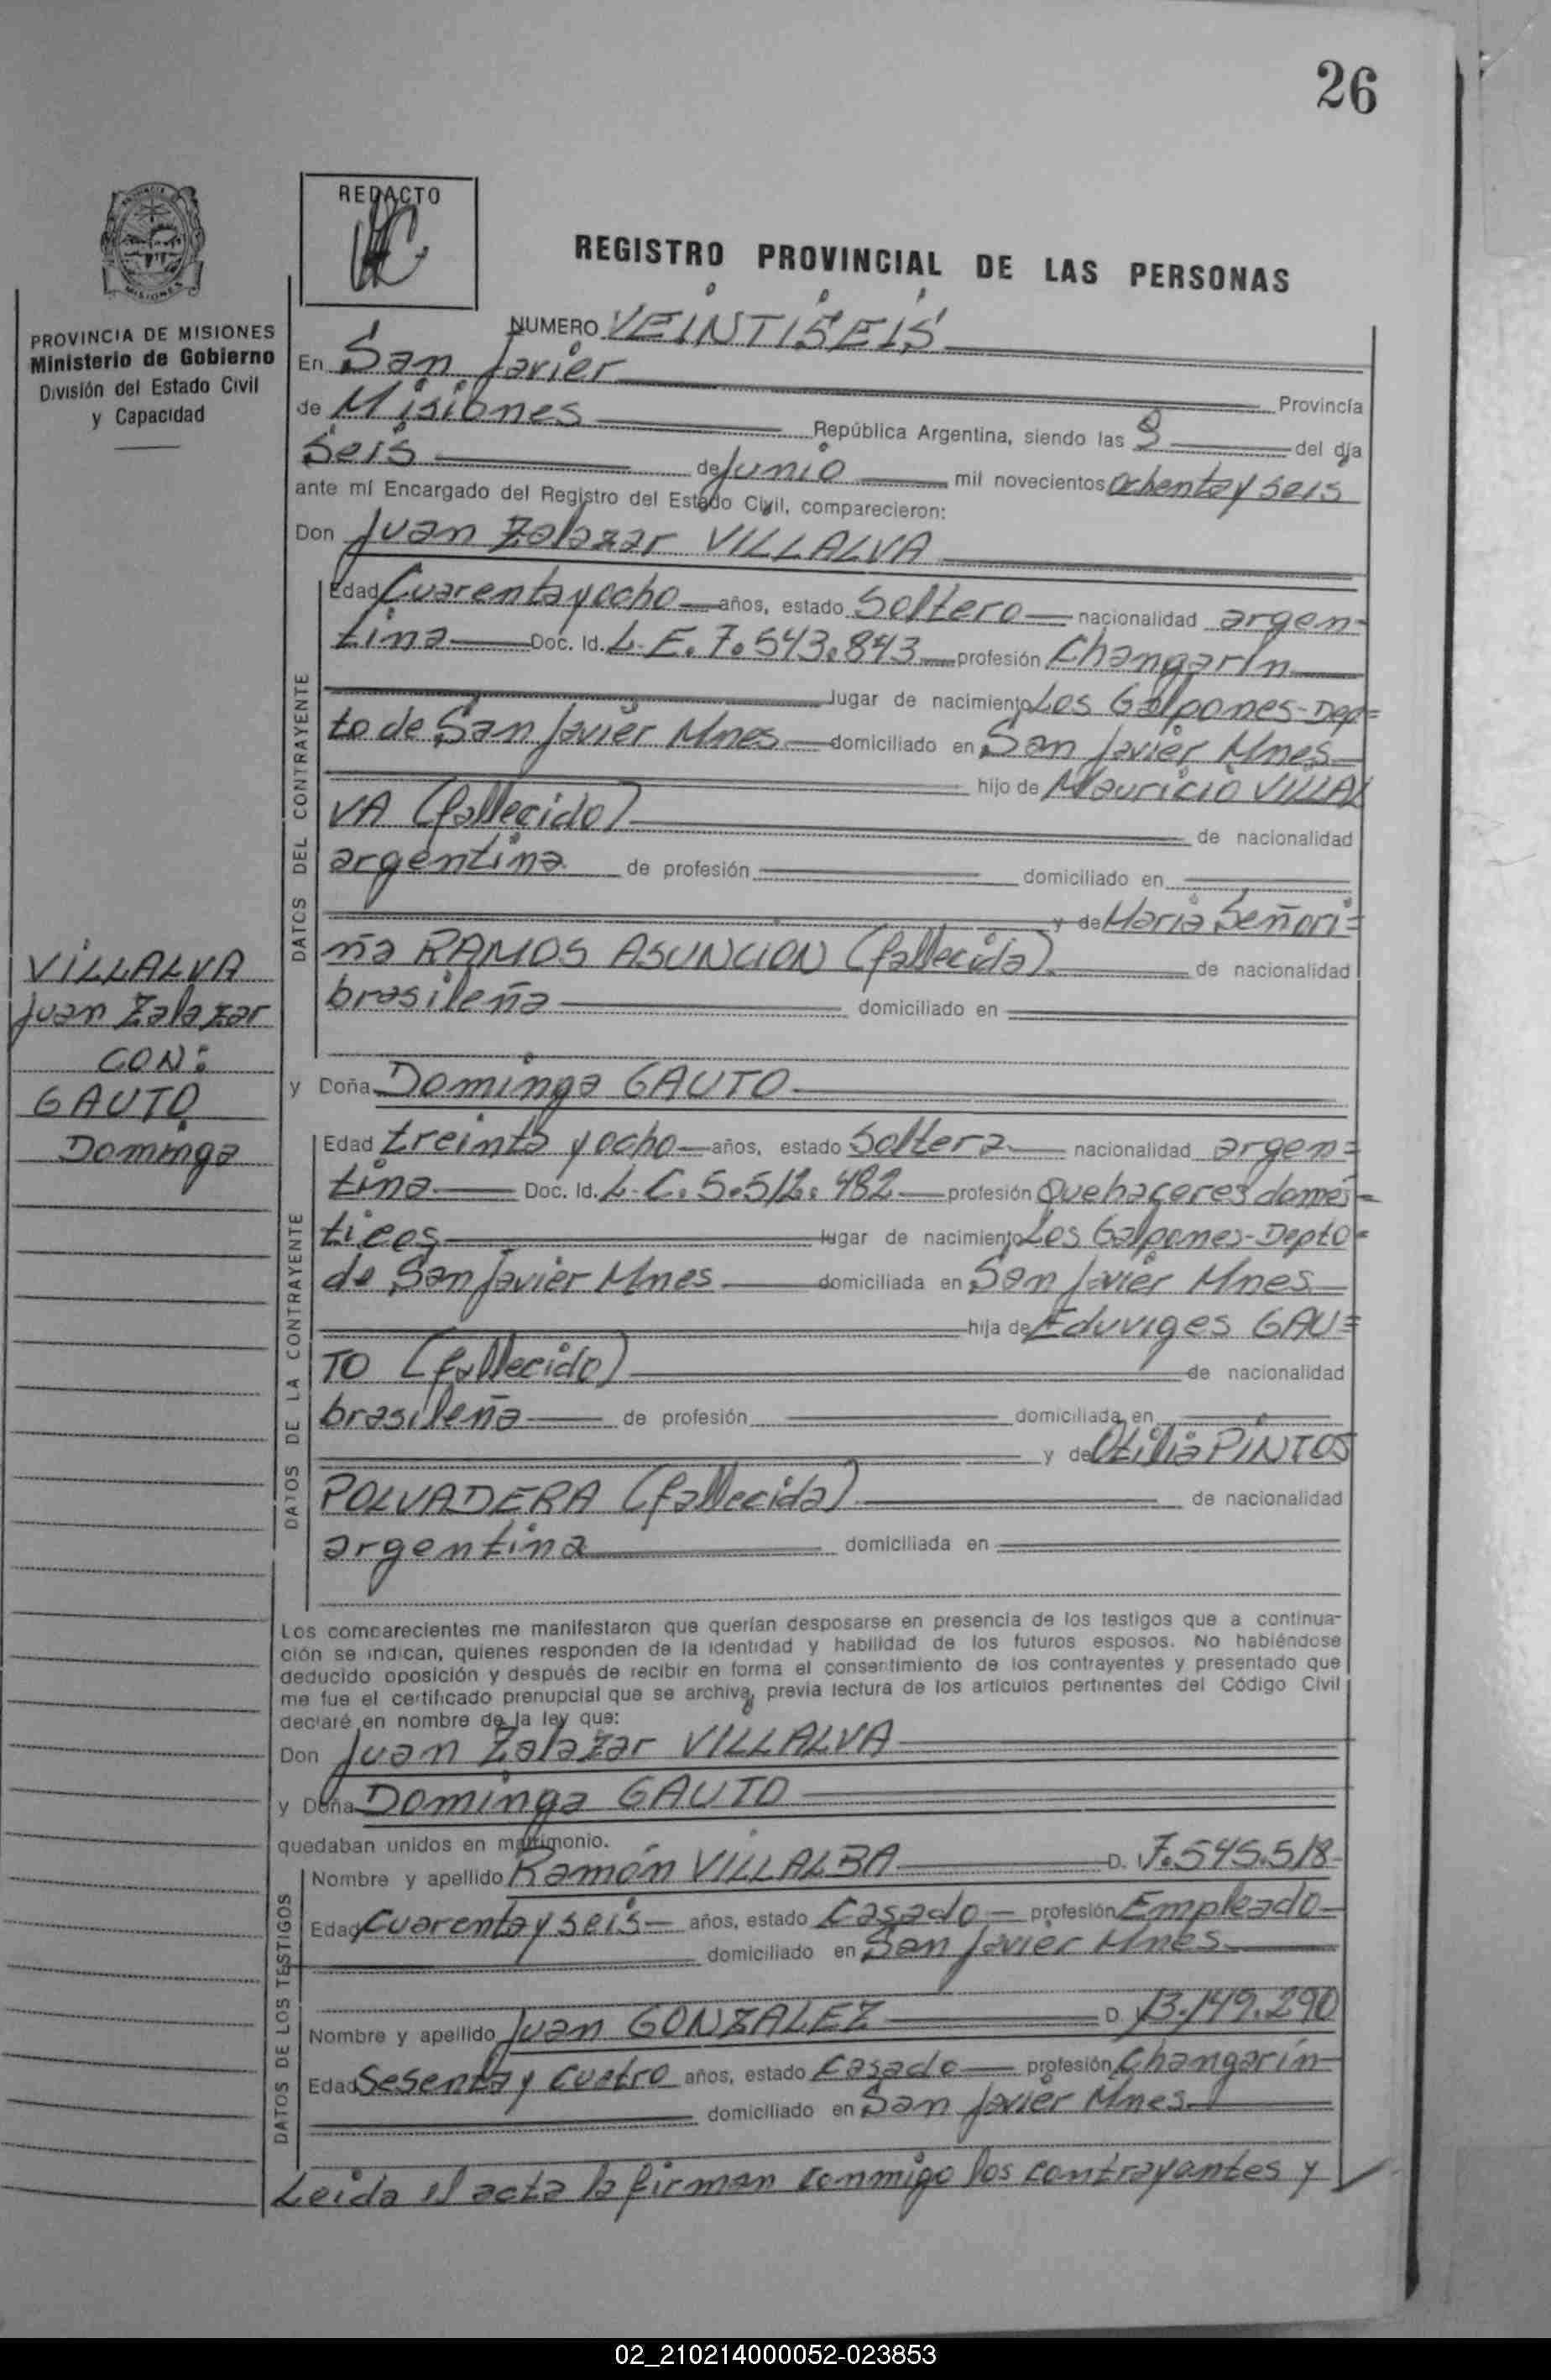 26
REDACTO
REGISTRO PROVINCIAL DE LAS PERSONAS
PROVINCIA DE MISIONES
Ministerio de Gobierno
División del Estado Civil
y Capacidad
MISIONES
NUMERO VEINTISEIS
En San Javier Provincia
de Misiones República Argentina, siendo las 9 del día
Seis de Junio mil novecientos ochenta y seis
ante mí Encargado del Registro del Estado Civil, comparecieron:
Don Juan Zalazar VILLALVA
DATOS DEL CONTRAYENTE
Edad Cuarenta y ocho años, estado Soltero nacionalidad argen-
tina Doc. Id. L.E. 7.543.843 profesión Changarín
lugar de nacimiento Los Galpones-Dep=
to de San Javier Mnes domiciliado en San Javier Mnes
hijo de Mauricio VILLAL
VA (fallecido) de nacionalidad
argentina de profesión domiciliado en
y de María Señori=
ña RAMOS ASUNCION (fallecida) de nacionalidad
brasileña domiciliado en
VILLALVA
Juan Zalazar
CON:
GAUTO
Dominga
y Doña Dominga GAUTO
DATOS DE LA CONTRAYENTE
Edad treinta y ocho años, estado Soltera nacionalidad argen=
tina Doc. Id. L.C. 5.512.482 profesión Quehaceres domés=
ticos lugar de nacimiento Los Galpones-Depto=
de San Javier Mnes domiciliada en San Javier Mnes
hija de Eduviges GAU=
TO (fallecido) de nacionalidad
brasileña de profesión domiciliada en
y de Otilia PINTOS
POLVADERA (fallecida) de nacionalidad
argentina domiciliada en
Los comparecientes me manifestaron que querían desposarse en presencia de los testigos que a continua-
ción se indican, quienes responden de la identidad y habilidad de los futuros esposos. No habiéndose
deducido oposición y después de recibir en forma el consentimiento de los contrayentes y presentado que
me fue el certificado prenupcial que se archiva, previa lectura de los artículos pertinentes del Código Civil
declaré en nombre de la ley que:
Don Juan Zalazar VILLALVA
y Doña Dominga GAUTO
quedaban unidos en matrimonio.
DATOS DE LOS TESTIGOS
Nombre y apellido Ramón VILLALBA D. I 7.545.518
Edad Cuarenta y seis años, estado Casado profesión Empleado
domiciliado en San Javier Mnes
Nombre y apellido Juan GONZALEZ D. 13.149.290
Edad Sesenta y cuatro años, estado Casado profesión Changarín
domiciliado en San Javier Mnes
Leida el acta la firman conmigo los contrayentes y
02_210214000052-023853